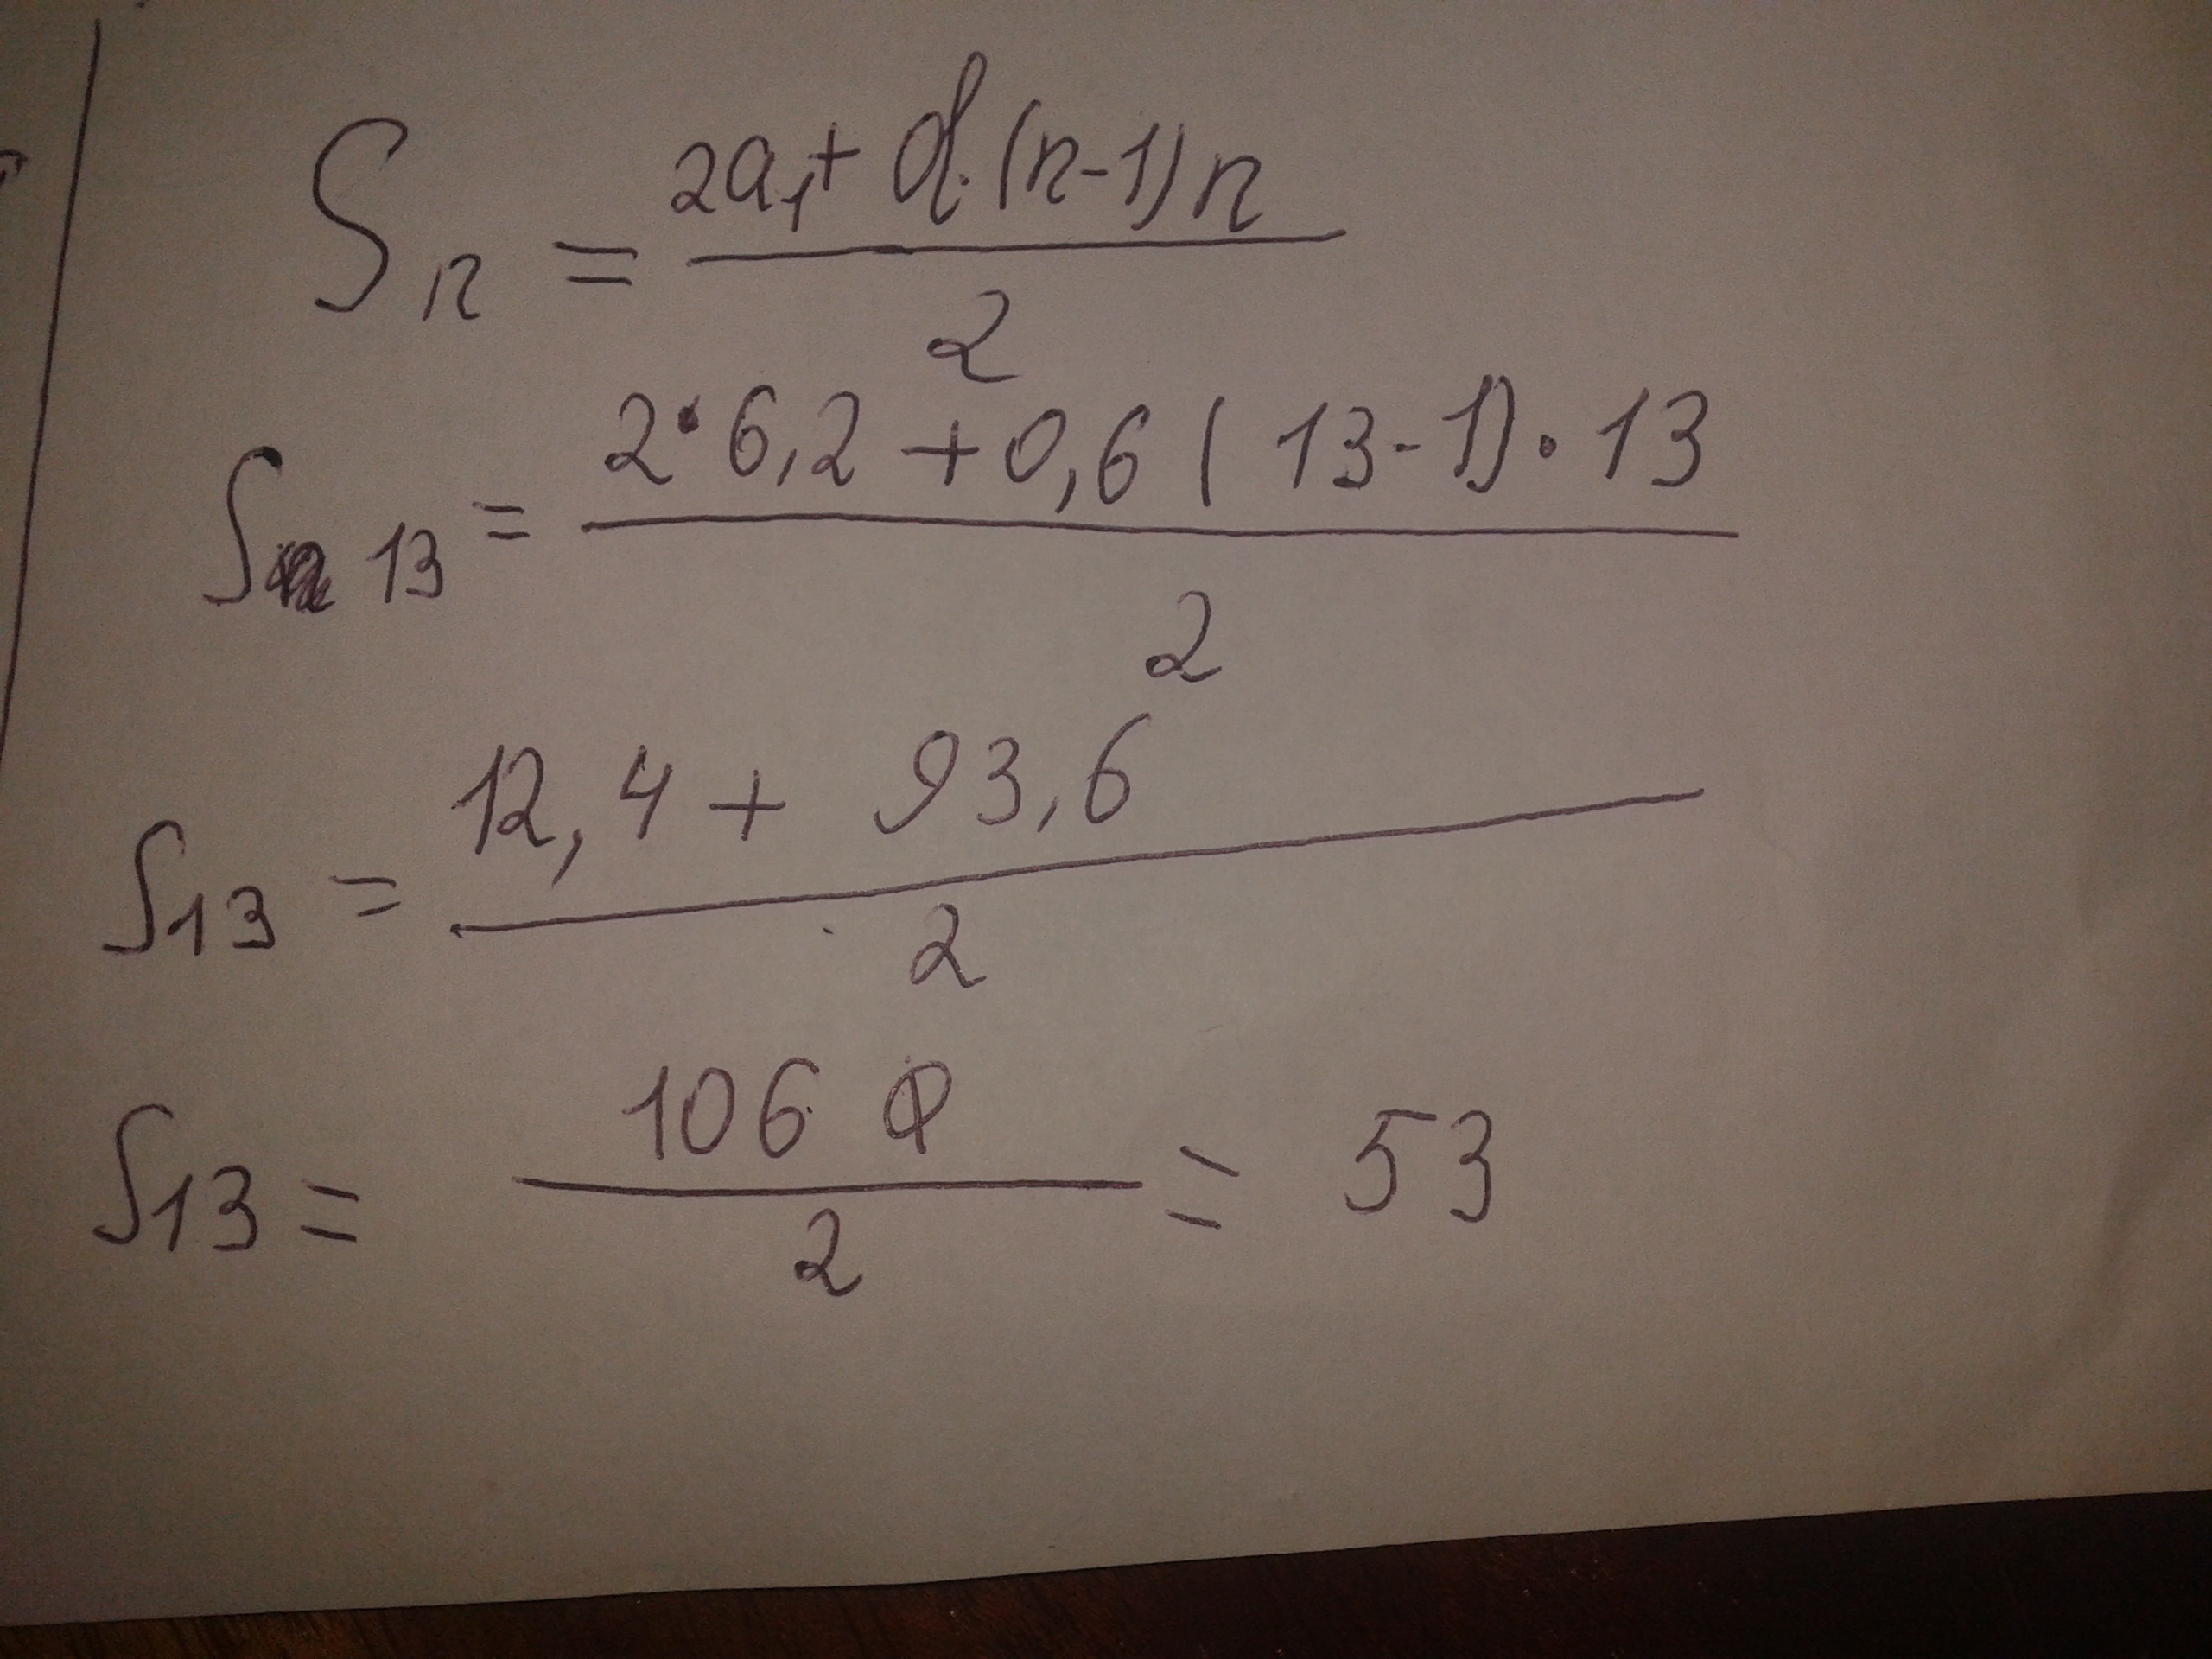 Sn = (2a₁ + d·(n-1)n)/2
S 13 = (2·6,2 + 0,6(13-1)·13)/2
S13 = (12,4 + 93,6)/2
S13 = 106/2 = 53